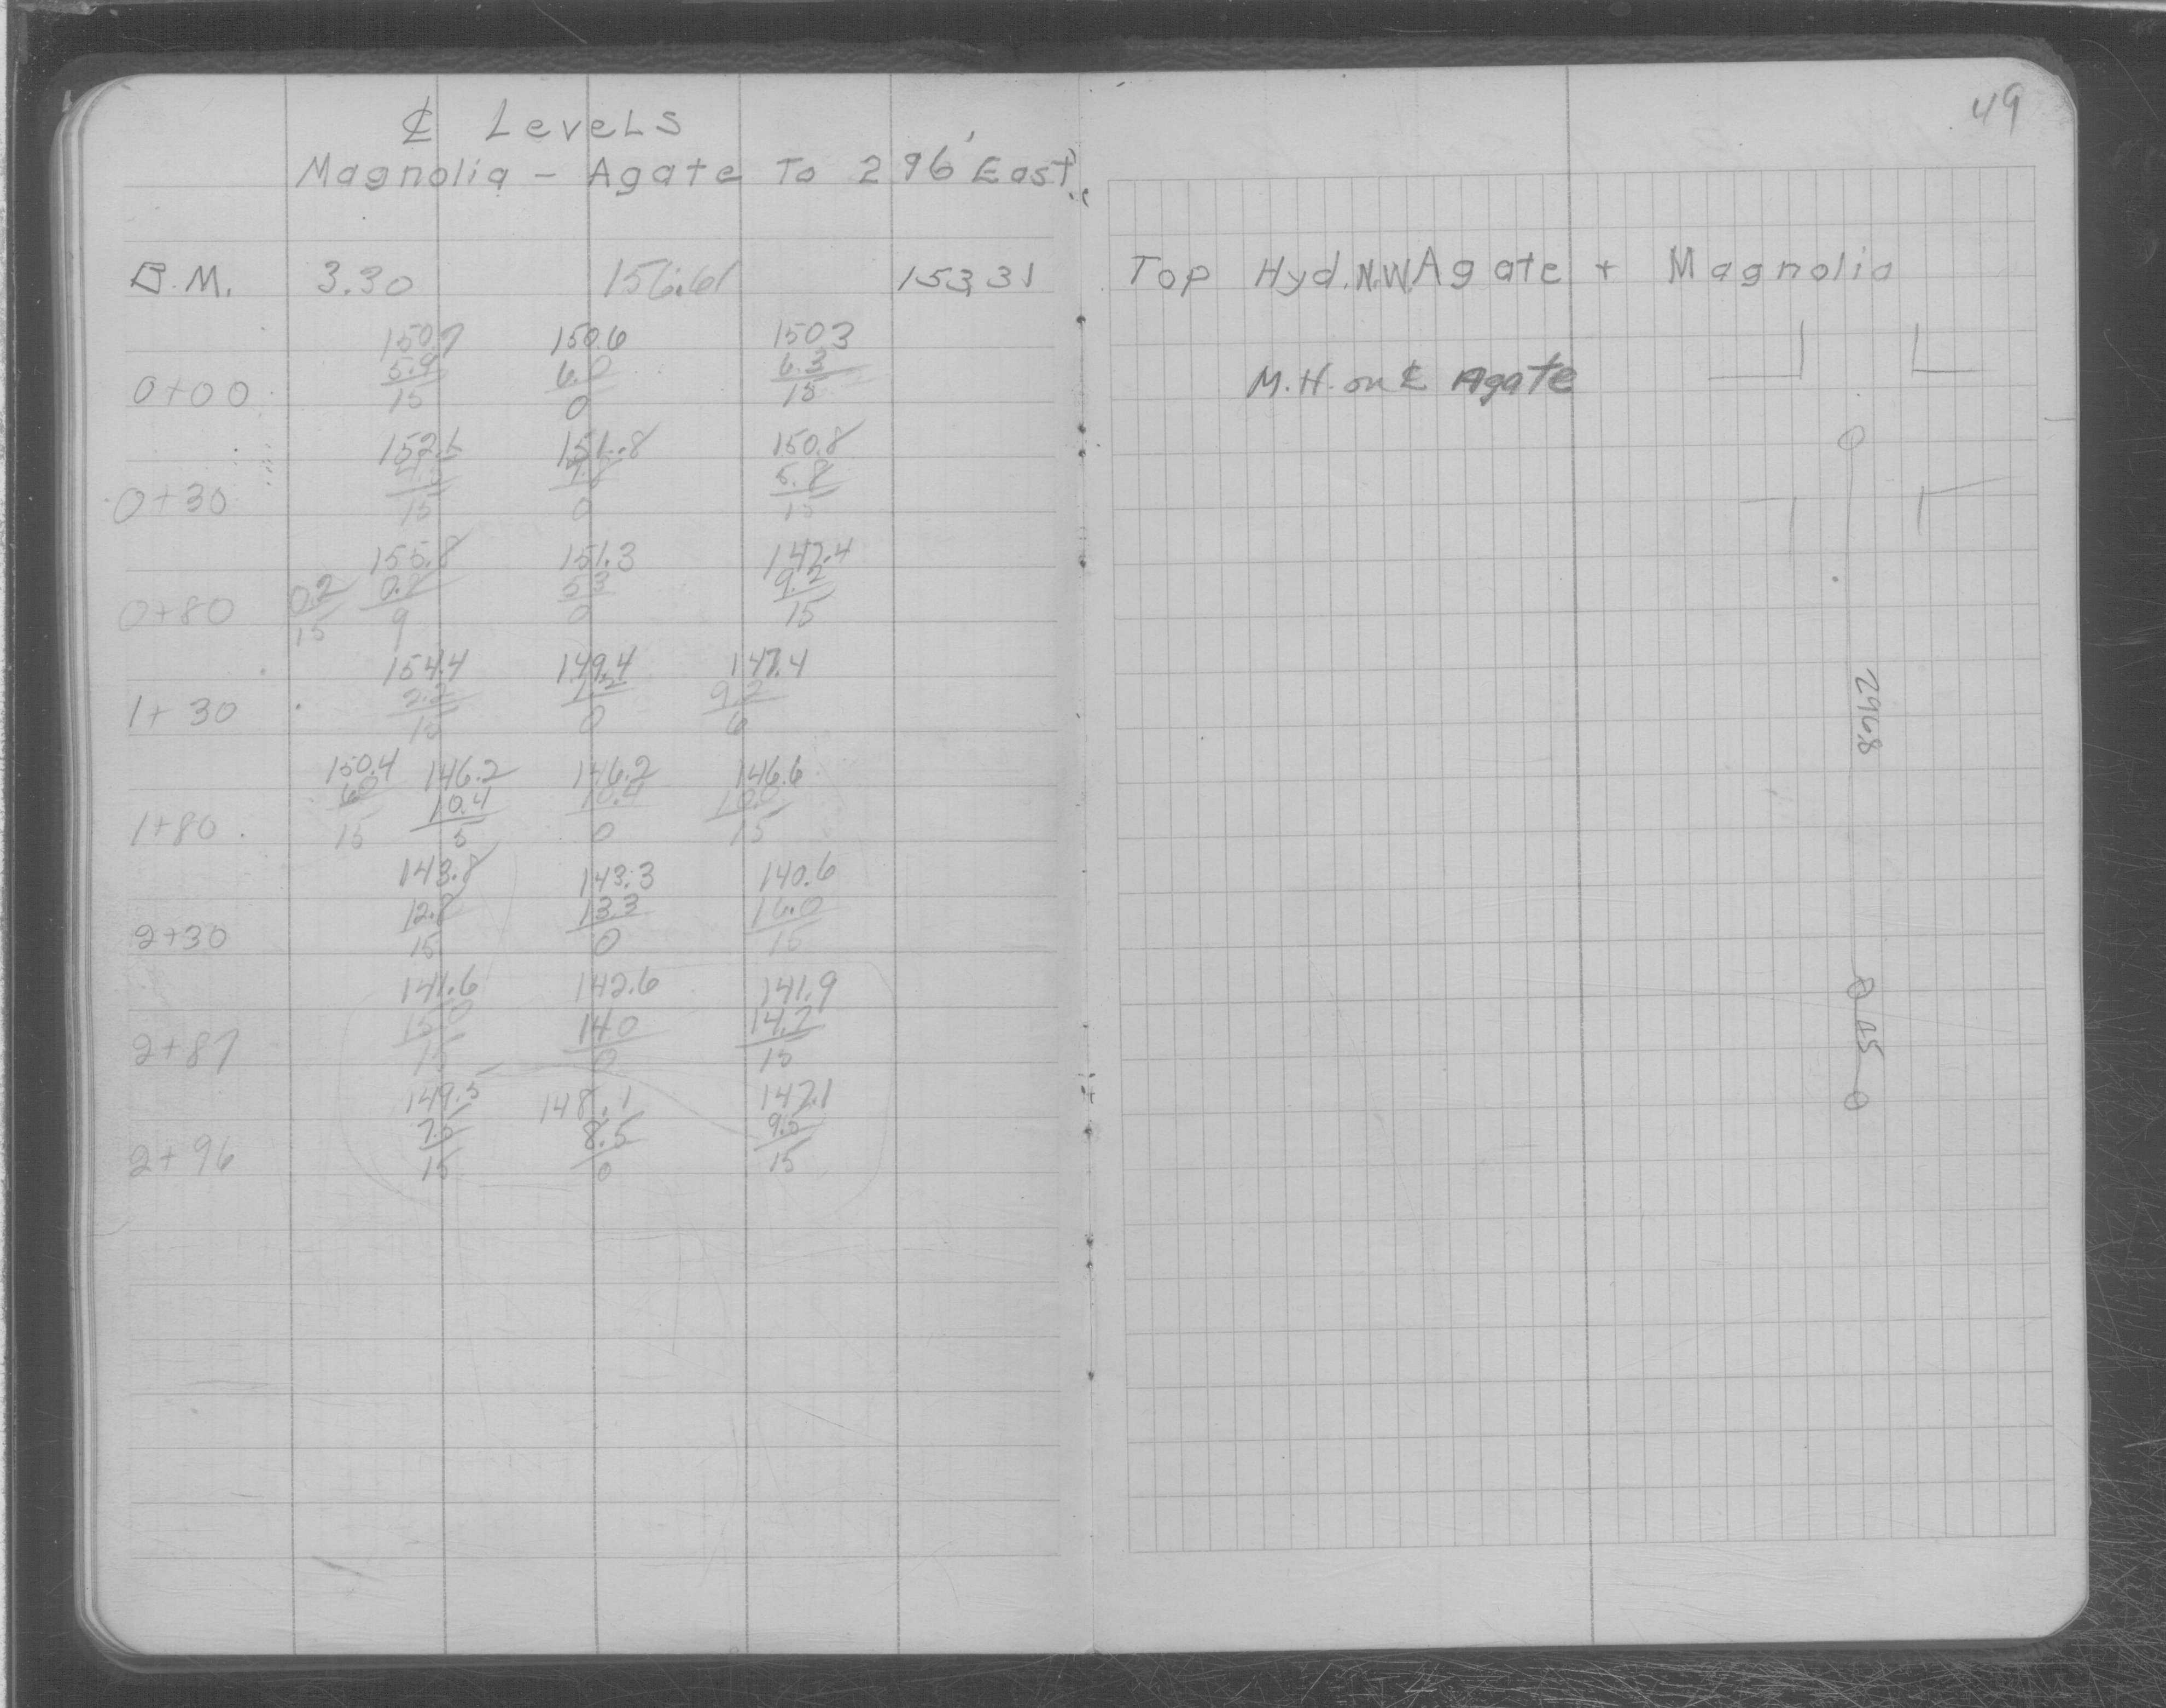 ℄ Levels
Magnolia - Agate To 296' East
B.M. 3.30 156.61 153.31
150.7 150.6 150.3
5.9 6.0 6.3
0+00 15 0 15
152.5 151.8 150.8
4.8 5.8
0+30 15 0 15
155.8 151.3 147.4
0.2 0.8 5.3 9.2
0+80 15 9 0 15
154.4 149.4 147.4
2.2 7.2 9.2
1+30 15 0 6
150.4 146.2 146.2 146.6
6.0 10.4 10.4 10.0
1+80 15 5 0 15
143.8 143.3 140.6
12.8 13.3 16.0
2+30 15 0 15
141.6 142.6 141.9
15.0 14.0 14.7
2+87 15 0 15
149.5 148.1 147.1
8.5 9.5
2+96 15 0 15
49
Top Hyd. N.W. Agate + Magnolia
M.H. on ℄ Agate
296.8